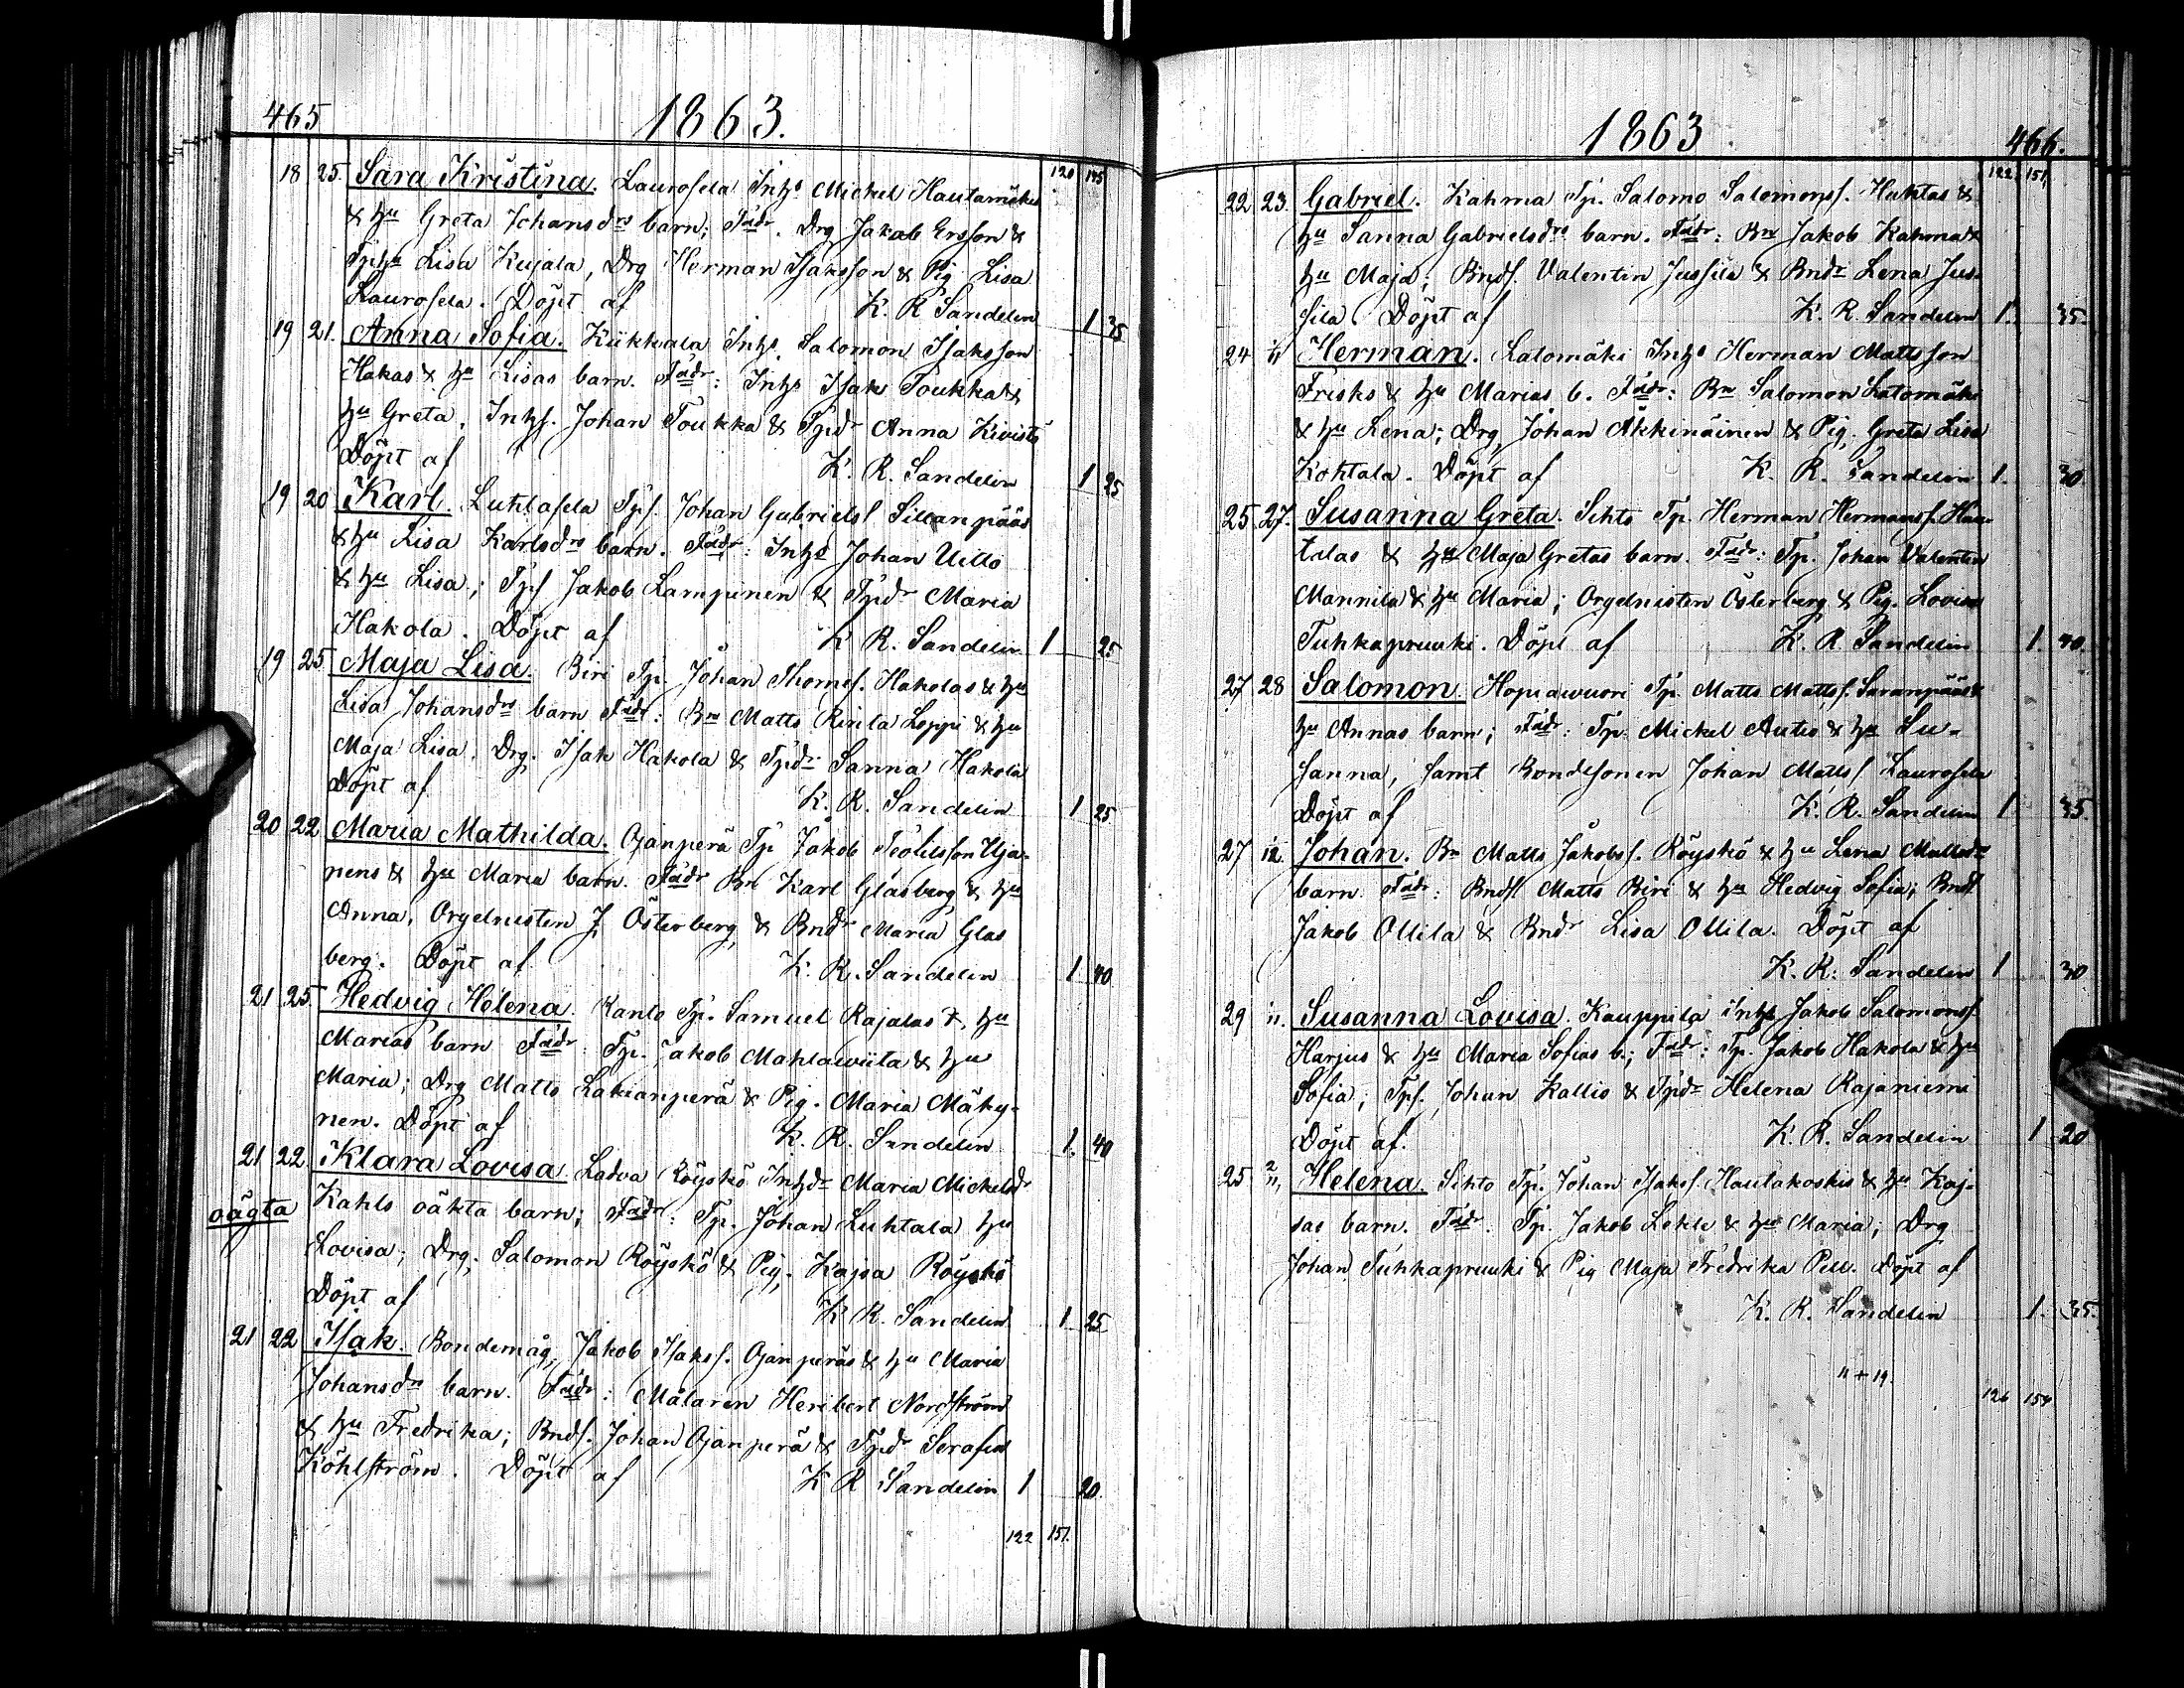 465 1863.
120 145
18 25. Sara Kristina. Laurosela Inhs Mickel Hautamäkis
& hu Greta Johansdrs barn; Fadr. Drg Jakob Ersson &
Tphu Lisa Kujala, Drg Herman Isaksson & Pig Lisa
Laurosela. Döpt af K. R. Sandelin 1 35
19 21. Anna Sofia. Kükkala Inhs. Salomon Isaksson
Hakas & hu Lisas barn. Fadr: Inhs Isak Toukka &
hu Greta, Inhs. Johan Toukka & Tpdr Anna Kivistö
Döpt af K. R. Sandelin 1 25
19 20 Karl. Luhtasela Tps. Johan Gabrielss Sillanpääs
& hu Lisa Karlsdrs barn. Fadr: Inhs Johan Uitto
& hu Lisa; Tps Jakob Lampinen & Tpdr Maria
Hakola. Döpt af K R. Sandelin 1 25
19 25 Maja Lisa. Biri Tp. Johan Thomes. Hakolas & hu
Lisa Johansdrs barn Fadr: Bn Matts Rinla Leppi & hu
Maja Lisa, Drg. Isak Hakola & Tpdr Sanna Hakola
Döpt af K. R. Sandelin 1 25
20 22 Maria Mathilda. Ojanperä Tp Jakob Teofilsson Uja-
nens & hu Maria barn. Fadr Bn Karl Glasberg & hu
Anna, Orgelnisten J. Österberg & Bndr Maria Glas
berg. Döpt af K. R. Sandelin 1 40
21 25. Hedvig Helena. Kanto Tp. Samuel Rajalas &, hu
Marias barn Fadr: Tp. Jakob Mahlawiita & hu
Maria; Drg Matts Lakianperä & Pig. Maria Mäky-
nen. Döpt af K. R. Sandelin 1. 40
21 22 Klara Lovisa. Ladva Röyskö Inhdr Maria Mickelsdr
oägta Kahls oäkta barn; Fadr: Tp. Johan Luhtala hu
Lovisa; Drg. Salomon Röyskö & Pig. Kajsa Röyskö
Döpt af K R. Sandelin 1 25
21 22 Isak. Bondemåg, Jakob Isakss. Ojanperäs & hu Maria
Johansdrs barn. Fadr: Målaren Heribert Nordström
& hu Fredrika; Bnds. Johan Ojanperä & Tpdr Serafia
Köhlström. Döpt af K R Sandelin 1 20.
122 151.
1863 466.
122 151.
22 23. Gabriel. Kahma Tp. Salomo Salomonss. Huktas &
hu Sanna Gabrielsdrs barn. Fadr: Bn Jakob Kahma &
hu Maja; Bnds. Valentin Jussila & Bndr Lena Jus-
sila Döpt af K. R. Sandelin 1. 35.
24 1/11 Herman. Latomäki Inhs Herman Mattsson
Frisks & hu Marias b. Fadr: Bn Salomon Latomäki
& hu Lena; Drg Johan Äkkinäinen & Pig. Greta Lisa
Kohtala. Döpt af K. R. Sandelin 1. 30
25 27. Susanna Greta. Sihto Tp. Herman Hermanss. Hau-
talas & hu Maja Gretas barn. Fadr: Tp. Johan Valentin
Mannila & hu Maria; Orgelnisten Österberg & Pig. Lovisa
Tuhkapruuki. Döpt af K. R. Sandelin 1. 40.
27 28 Salomon. Hopiawuori Tp. Matts Mattss. Saranpääs &
hu Annas barn; Fadr: Tp. Mickel Autio & hu Su-
sanna, samt Bondesonen Johan Mattss Laurosela
Döpt af K. R. Sandelin 1 35.
27 Johan. Bn Matts Jakobss. Röyskö & hu Lena Mattsdrs
barn. Fadr: Bnds Matts Biri & hu Hedvig Sofia; Bnds
Jakob Ollila & Bndr Lisa Ollila. Döpt af
K. R. Sandelin 1 30
29 Susanna Lovisa. Kauppila Inhs Jakob Salomonss
Harjus & hu Maria Sofias b.; Fadr: Tp. Jakob Hakola & hu
Sofia; Tps. Johan Kallio & Tpdr Helena Rajaniemi
Döpt af. K. R. Sandelin 1 20
25 2/11 Helena. Sihto Tp. Johan Isakss. Hautakoskis & hu Kaj-
sas barn. Fadr. Tp. Jakob Lehle & hu Maria; Drg
Johan Tuhkapruuki & Pig Maja Fredrika Pell. Döpt af
K. R. Sandelin 1. 35.
11 + 19.
126 154